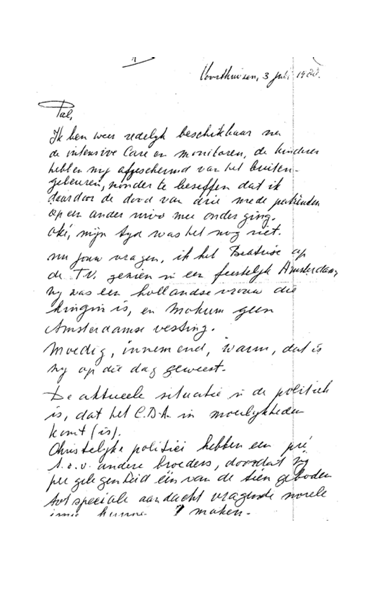 Voorthuizen, 3 juli 19
Pal,
Ik ben weer redelijk beschikbaar na
de intensive Care en monitoren, de kinderen
hebben my afgeschermd van het buiten-
gebeuren, zonder te beseffen dat ik
daardoor de dood van drie mede patienten
op een ander nivo mee onderging.
Oké, mijn tyd was het nog niet.
nu jouw vragen, ik heb Beatrix op
de T.V. gezien in een feestelyk Amsterdam,
zy was een hollandse vrouw die
koningin is, en mokum geen
Amsterdamse vesting.
Moedig, innemend, warm, dat is
zy op die dag geweest.
De aktueele situatie in de politiek
is, dat het C.D.A. in moeilykheden
komt (is).
Christelyke politici hebben een pré
t.o.v. andere broeders, doordat zy
per gelegenheid één van de tien geboden
tot speciale aandacht vragende morele
maken.